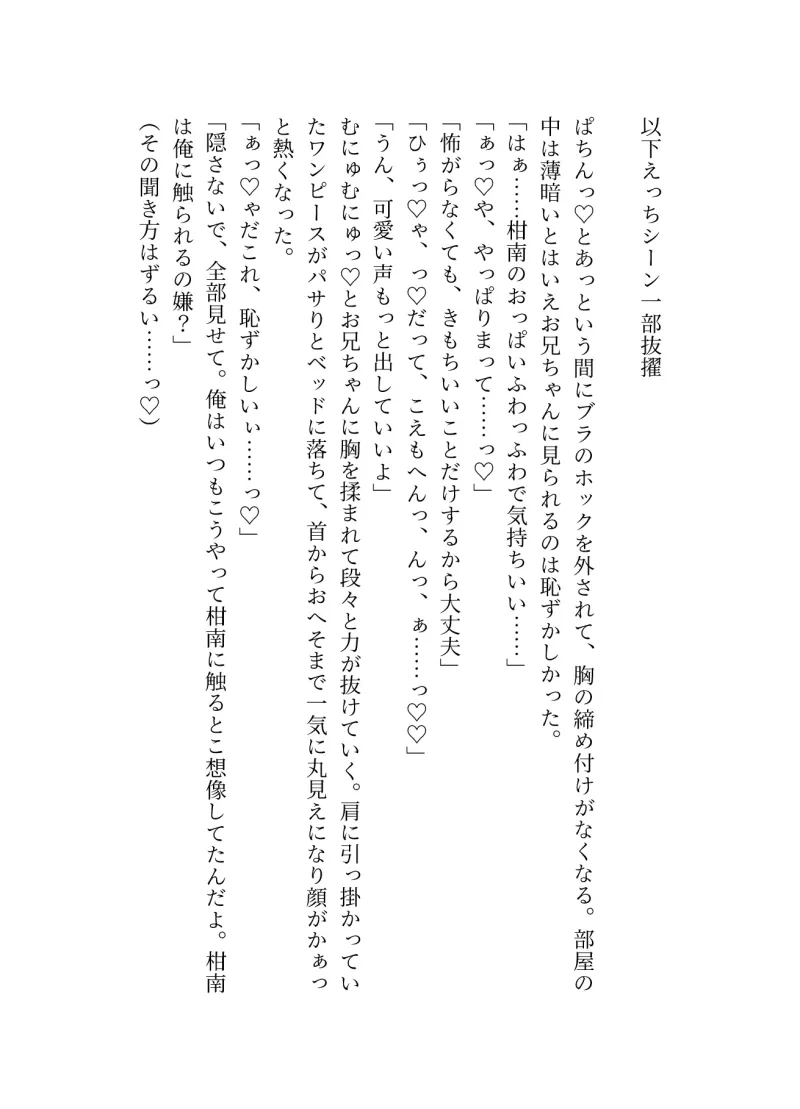 以下えっちシーン一部抜擢
ぱちんっ♡とあっという間にブラのホックを外されて、胸の締め付けがなくなる。部屋の
中は薄暗いとはいえお兄ちゃんに見られるのは恥ずかしかった。
「はぁ……柑南のおっぱいふわっふわで気持ちいい……」
「ぁっ♡や、やっぱりまって……っ♡」
「怖がらなくても、きもちいいことだけするから大丈夫」
「ひぅっ♡ゃ、っ♡だって、こえもへんっ、んっ、ぁ……っ♡♡」
「うん、可愛い声もっと出していいよ」
むにゅむにゅっ♡とお兄ちゃんに胸を揉まれて段々と力が抜けていく。肩に引っ掛かってい
たワンピースがパサりとベッドに落ちて、首からおへそまで一気に丸見えになり顔がかぁっ
と熱くなった。
「ぁっ♡ゃだこれ、恥ずかしいぃ……っ♡」
「隠さないで、全部見せて。俺はいつもこうやって柑南に触るとこ想像してたんだよ。柑南
は俺に触られるの嫌？」
(その聞き方はずるい……っ♡)